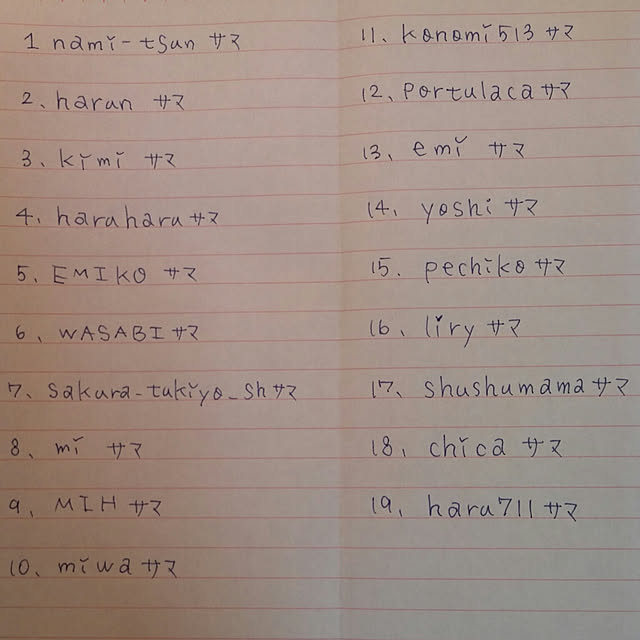 1 nami-tsun サマ
2、harun サマ
3、kimi サマ
4、haruharu サマ
5、EMIKO サマ
6、WASABI サマ
7、sakura-tukiyo_sh サマ
8、mi サマ
9、MIH サマ
10、miwa サマ
11、konomi513 サマ
12、portulaca サマ
13、emi サマ
14、yoshi サマ
15、pechiko サマ
16、liry サマ
17、shushumama サマ
18、chica サマ
19、haru711 サマ